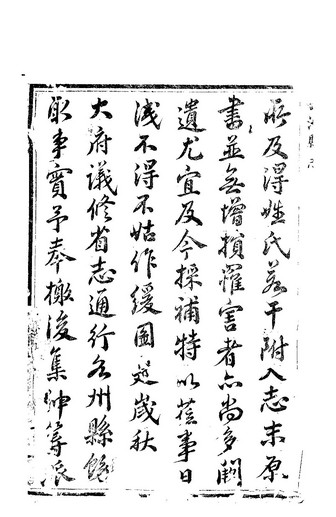 所及得姓氏若干附入志末原
書並無增損罹害者亦尚多闕
遺尤宜及今採補特以蒞事日
淺不得不姑作緩圖茲歲秋
大府議修省志通行各州縣飭
取事實予奉檄後集紳籌